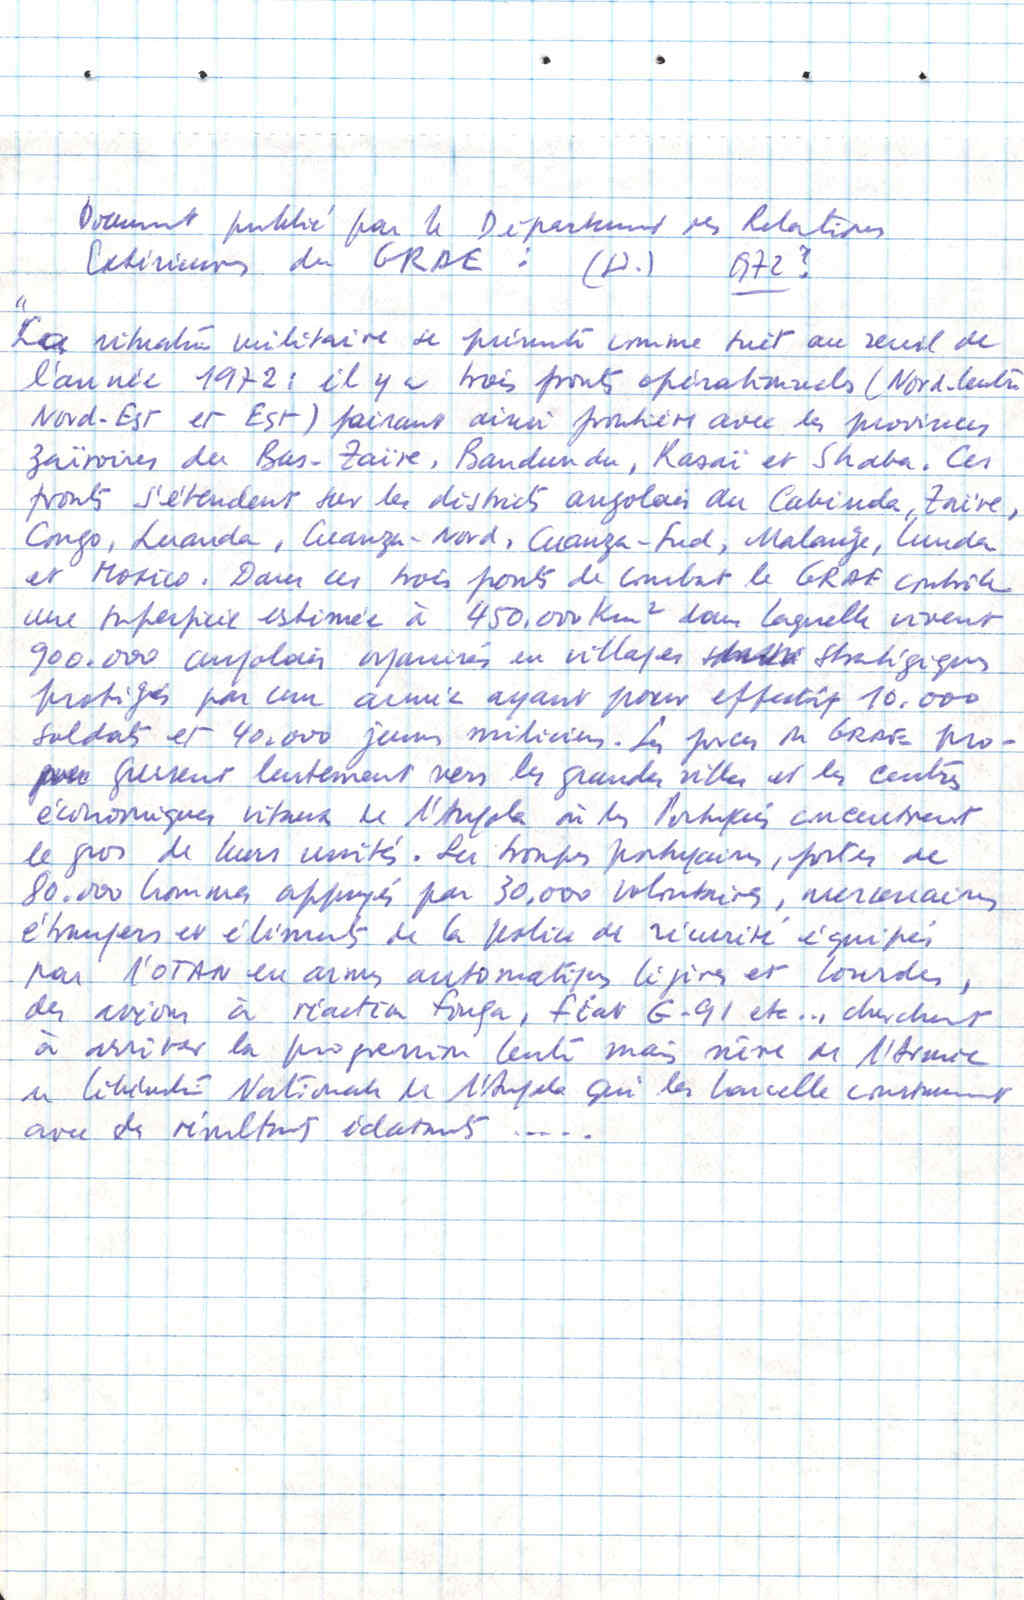 Document publié par le Département des Relations
Extérieures du GRAE : (D.) 1972?
"La situation militaire se présente comme suit au seuil de
l'année 1972: il y a trois fronts opérationnels (Nord-Centre
Nord-Est et Est) faisant ainsi frontière avec les provinces
zaïroises du Bas-Zaïre, Bandundu, Kasaï et Shaba. Ces
fronts s'étendent sur les districts angolais du Cabinda, Zaïre,
Congo, Luanda, Cuanza-Nord, Cuanza-Sud, Malange, Lunda
et Moxico. Dans ces trois fronts de combat le GRAE contrôle
une superficie estimée à 450.000 Km² dans laquelle vivent
900.000 angolais organisés en villages stratégiques
protégés par une armée ayant pour effectif 10.000
soldats et 40.000 jeunes miliciens. Les forces du GRAE pro-
gressent lentement vers les grandes villes et les centres
économiques vitaux de l'Angola où les Portugais concentrent
le gros de leurs unités. Les troupes portugaises, fortes de
80.000 hommes appuyés par 30.000 volontaires, mercenaires
étrangers et éléments de la police de sécurité équipés
par l'OTAN en armes automatiques légères et lourdes,
des avions à réaction Fouga, Fiat G-91 etc..., cherchent
à arrêter la progression lente mais sûre de l'Armée
de Libération Nationale de l'Angola qui les harcelle constamment
avec des résultats éclatants .....